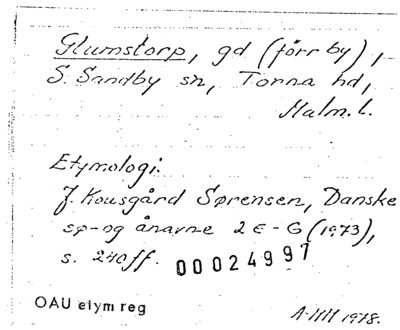 Glumstorp, gd (förr by),
S. Sandby sn, Torna hd,
Malm. l.
Etymologi:
J. Kousgård Sørensen, Danske
sø- og ånavne 2 E-G (1973),
s. 240 ff.
00024997
OAU etym reg
1978.